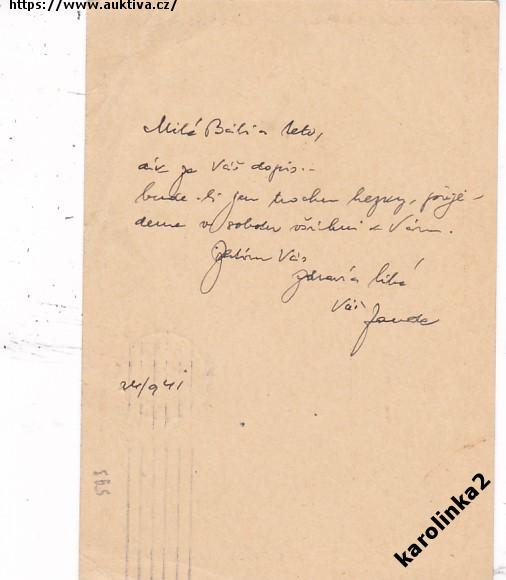 https://www.auktiva.cz/
Milá Báli a teto,
dík za Váš dopis..
bude-li jen trochu hezky, přije-
deme v sobotu všichni k Vám.
Zatím Vás
zdraví a líbá
Váš
24/9 41
karolinka2